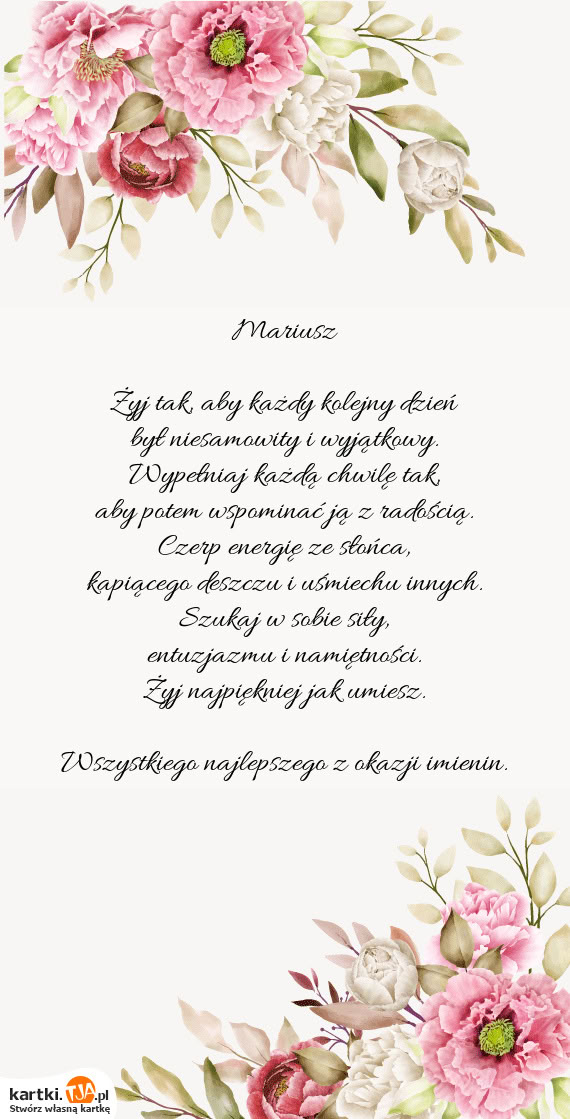 Mariusz
Żyj tak, aby każdy kolejny dzień
był niesamowity i wyjątkowy.
Wypełniaj każdą chwilę tak,
aby potem wspominać ją z radością.
Czerp energię ze słońca,
kapiącego deszczu i uśmiechu innych.
Szukaj w sobie siły,
entuzjazmu i namiętności.
Żyj najpiękniej jak umiesz.
Wszystkiego najlepszego z okazji imienin.
kartki.TJA.pl
Stwórz własną kartkę